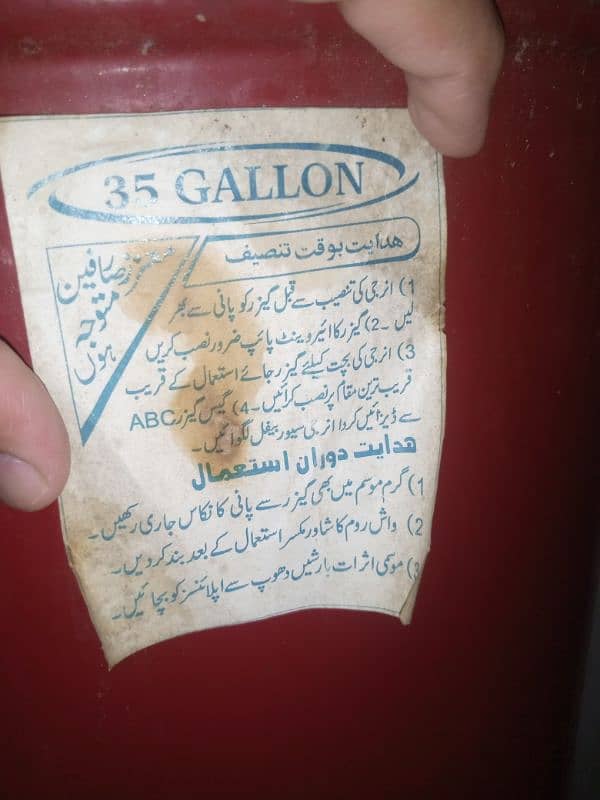 35 GALLON
معزز صارفین
متوجہ
ہوں
ھدایت بوقت تنصیف
1) انرجی کی تنصیب سے قبل گیزر کو پانی سے بھر
لیں ۔2) گیزر کا ائیر وینٹ پائپ ضرور نصب کریں
3) انرجی کی بچت کیلئے گیزر جائے استعمال کے قریب
قریب ترین مقام پر نصب کرائیں ۔4) گیس گیزر ABC
سے ڈیزائیں کردا انرجی سیور بیفل لگوائیں ۔
ھدایت دوران استعمال
1) گرم موسم میں بھی گیزر سے پانی کا نکاس جاری رکھیں ۔
2) واش روم کا شاور مکسر استعمال کے بعد بند کر دیں ۔
3) موسی اثرات بارشیں دھوپ سے اپلائنسز کو بچائیں ۔